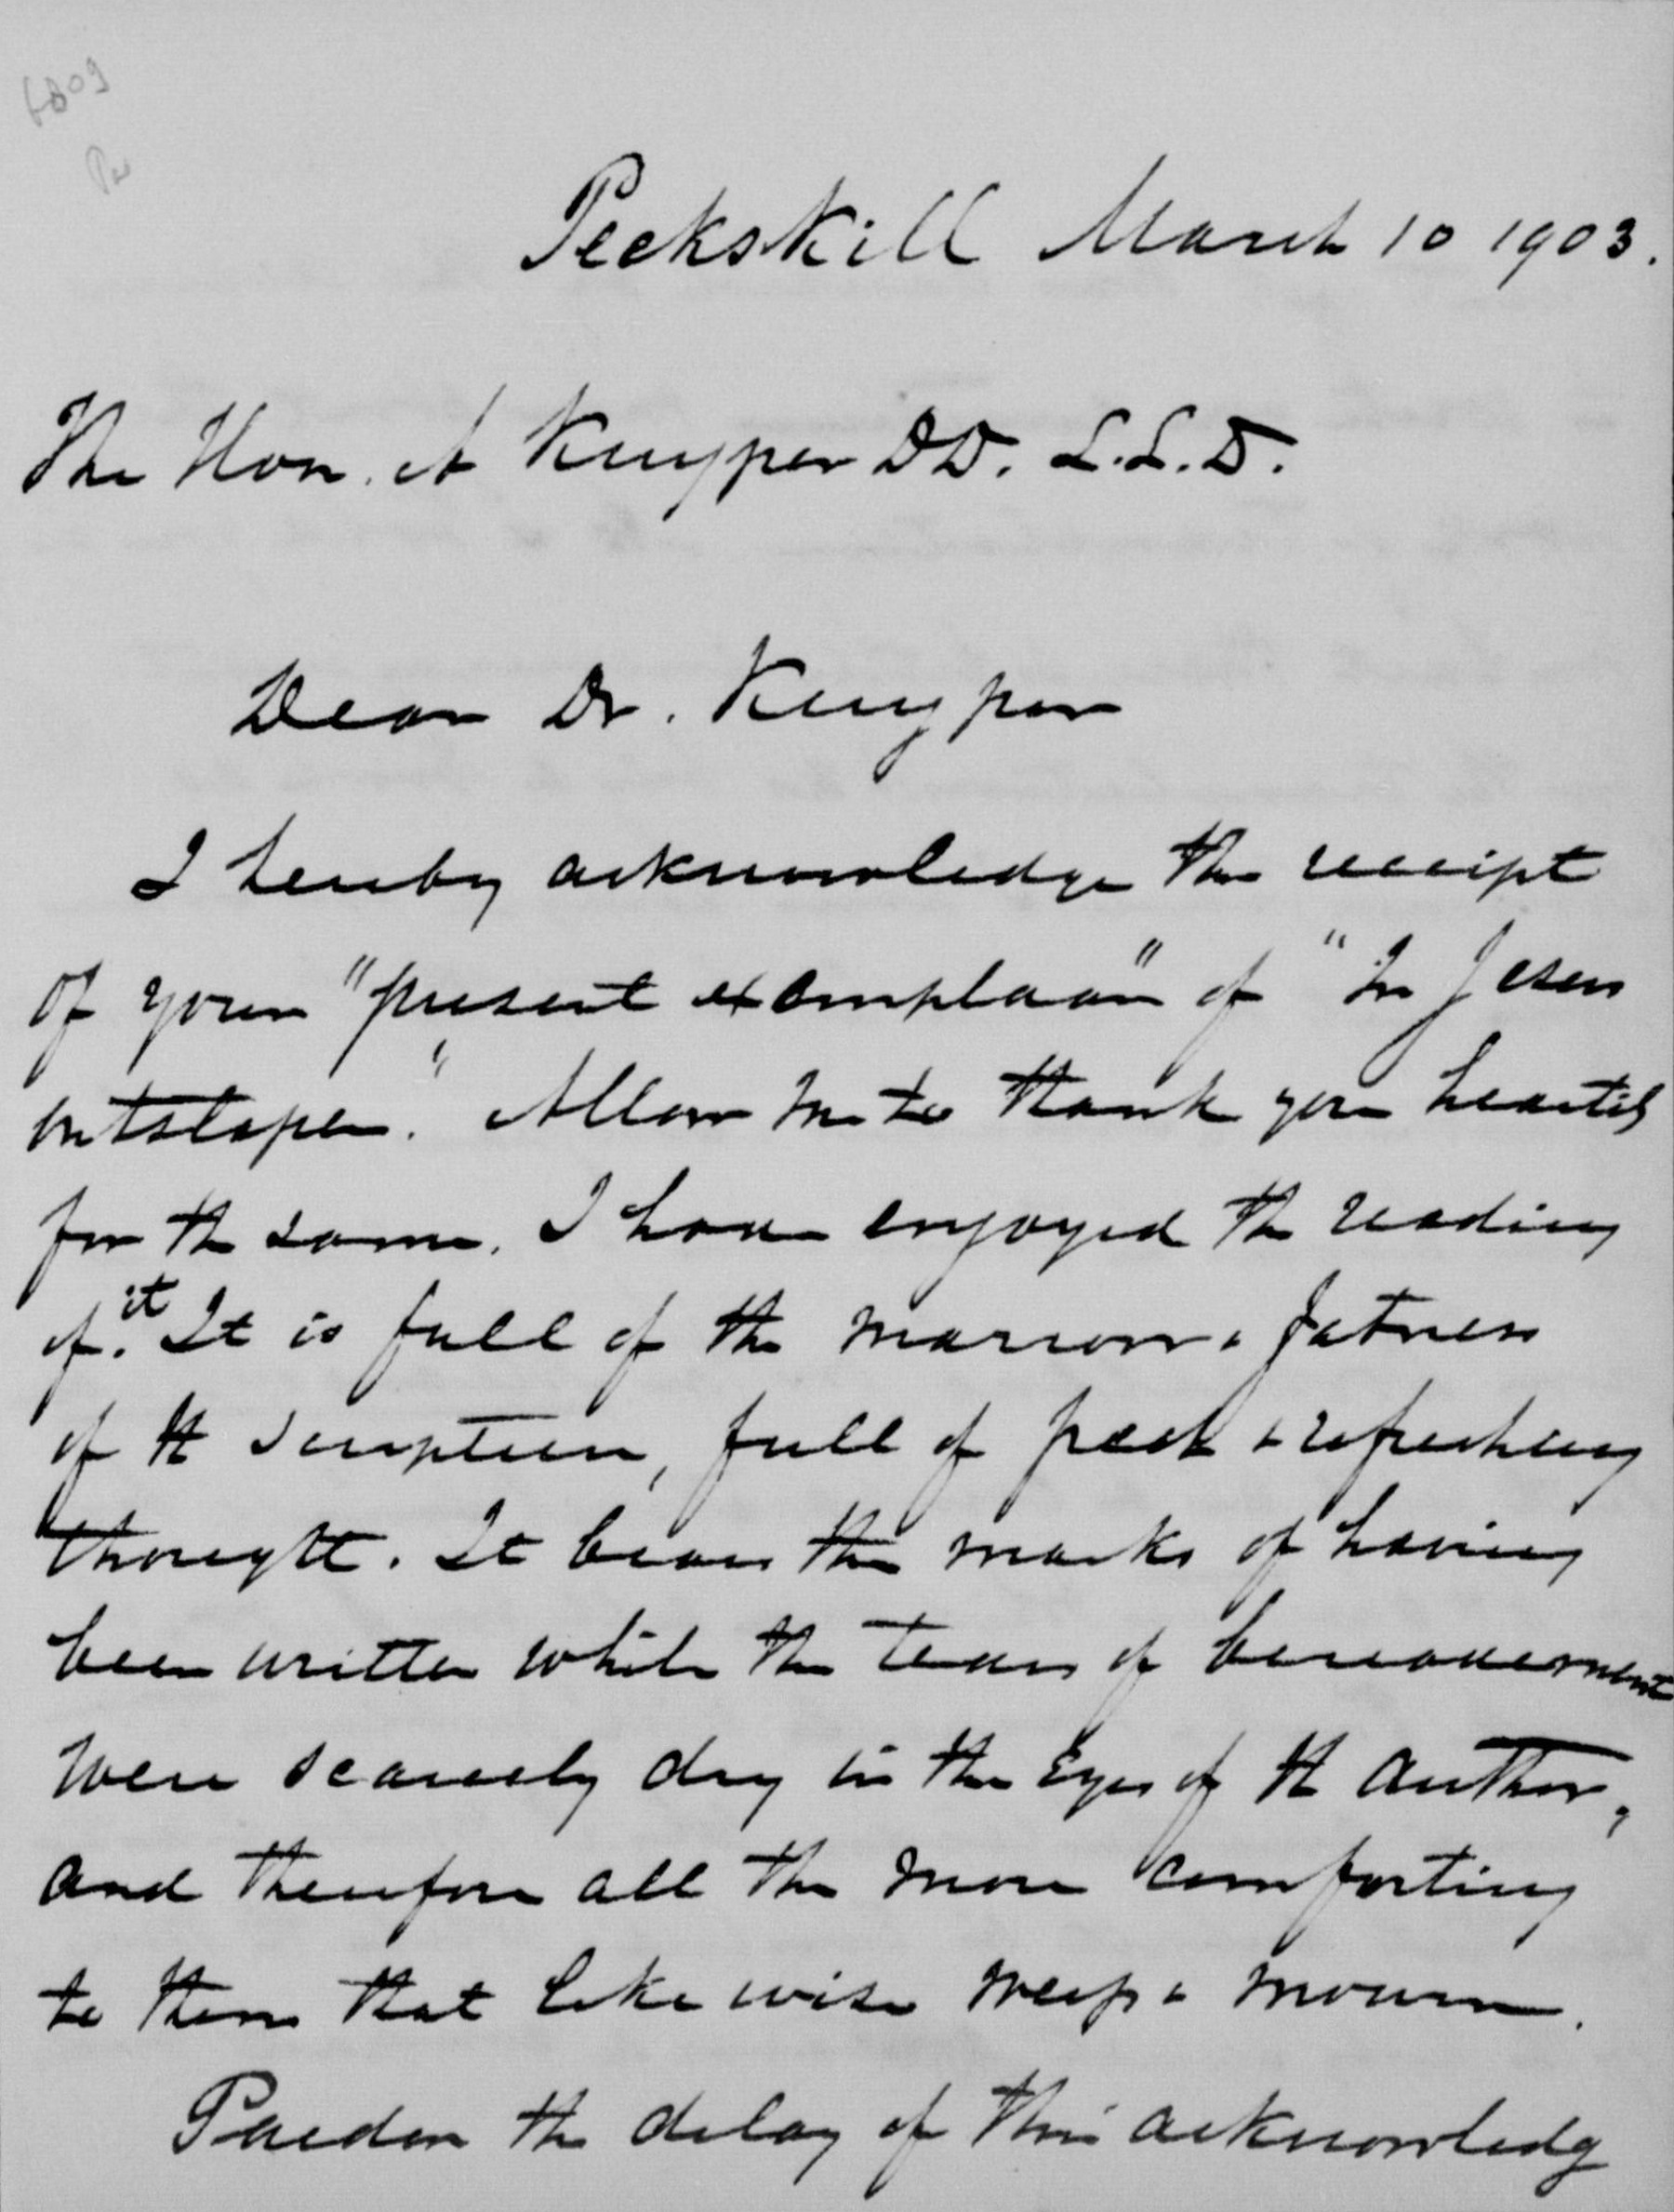 6809
Peekskill March 10 1903.
The Hon. A Kuyper DD. L.L.D.
Dear Dr. Kuyper
I hereby acknowledge the receipt
of your "present exemplaar" of "In Jesus
ontslapen." Allow me to thank you heartily
for the same. I have enjoyed the reading
of it. It is full of the marrow & fatness
of the Scripture, full of fresh & refreshing
thought. It bears the marks of having
been written while the tears of bereavement
were scarcely dry in the Eyes of the Author,
and therefore all the more comforting
to them that likewise weep & mourn.
Pardon the delay of this acknowledg